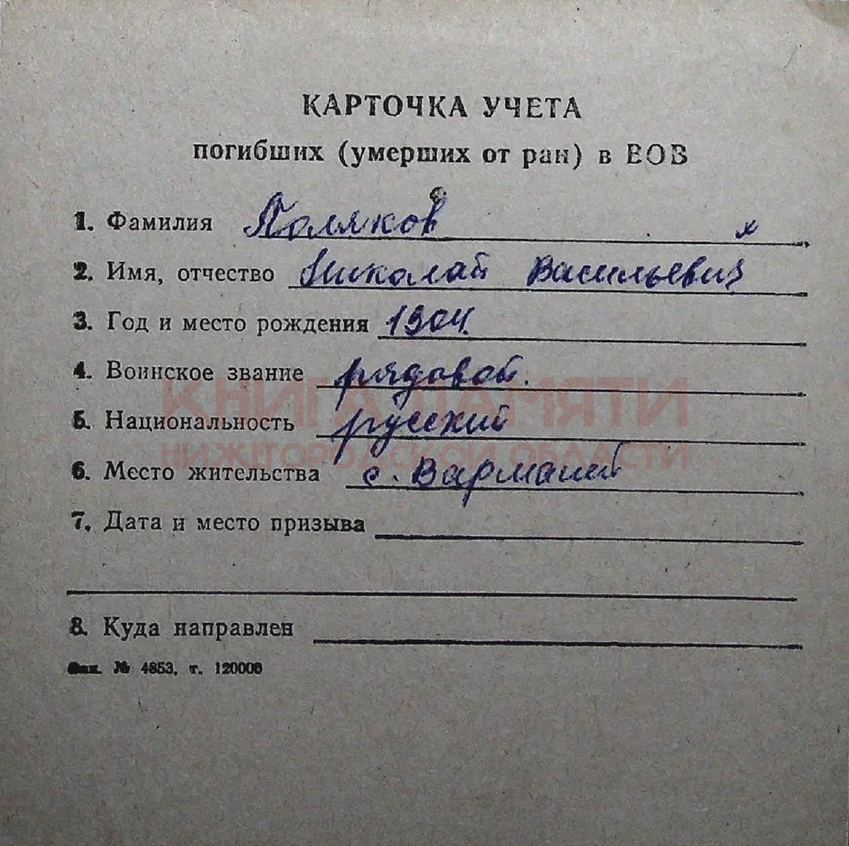 КАРТОЧКА УЧЕТА
погибших (умерших от ран) в ВОВ
1. Фамилия Поляков
2. Имя, отчество Николай Васильевич
3. Год и место рождения 1904.
4. Воинское звание рядовой.
КНИГА ПАМЯТИ
5. Национальность русский
НИЖЕГОРОДСКОЙ ОБЛАСТИ
6. Место жительства с.
7. Дата и место призыва
8. Куда направлен
Зак. № 4853, т. 120000